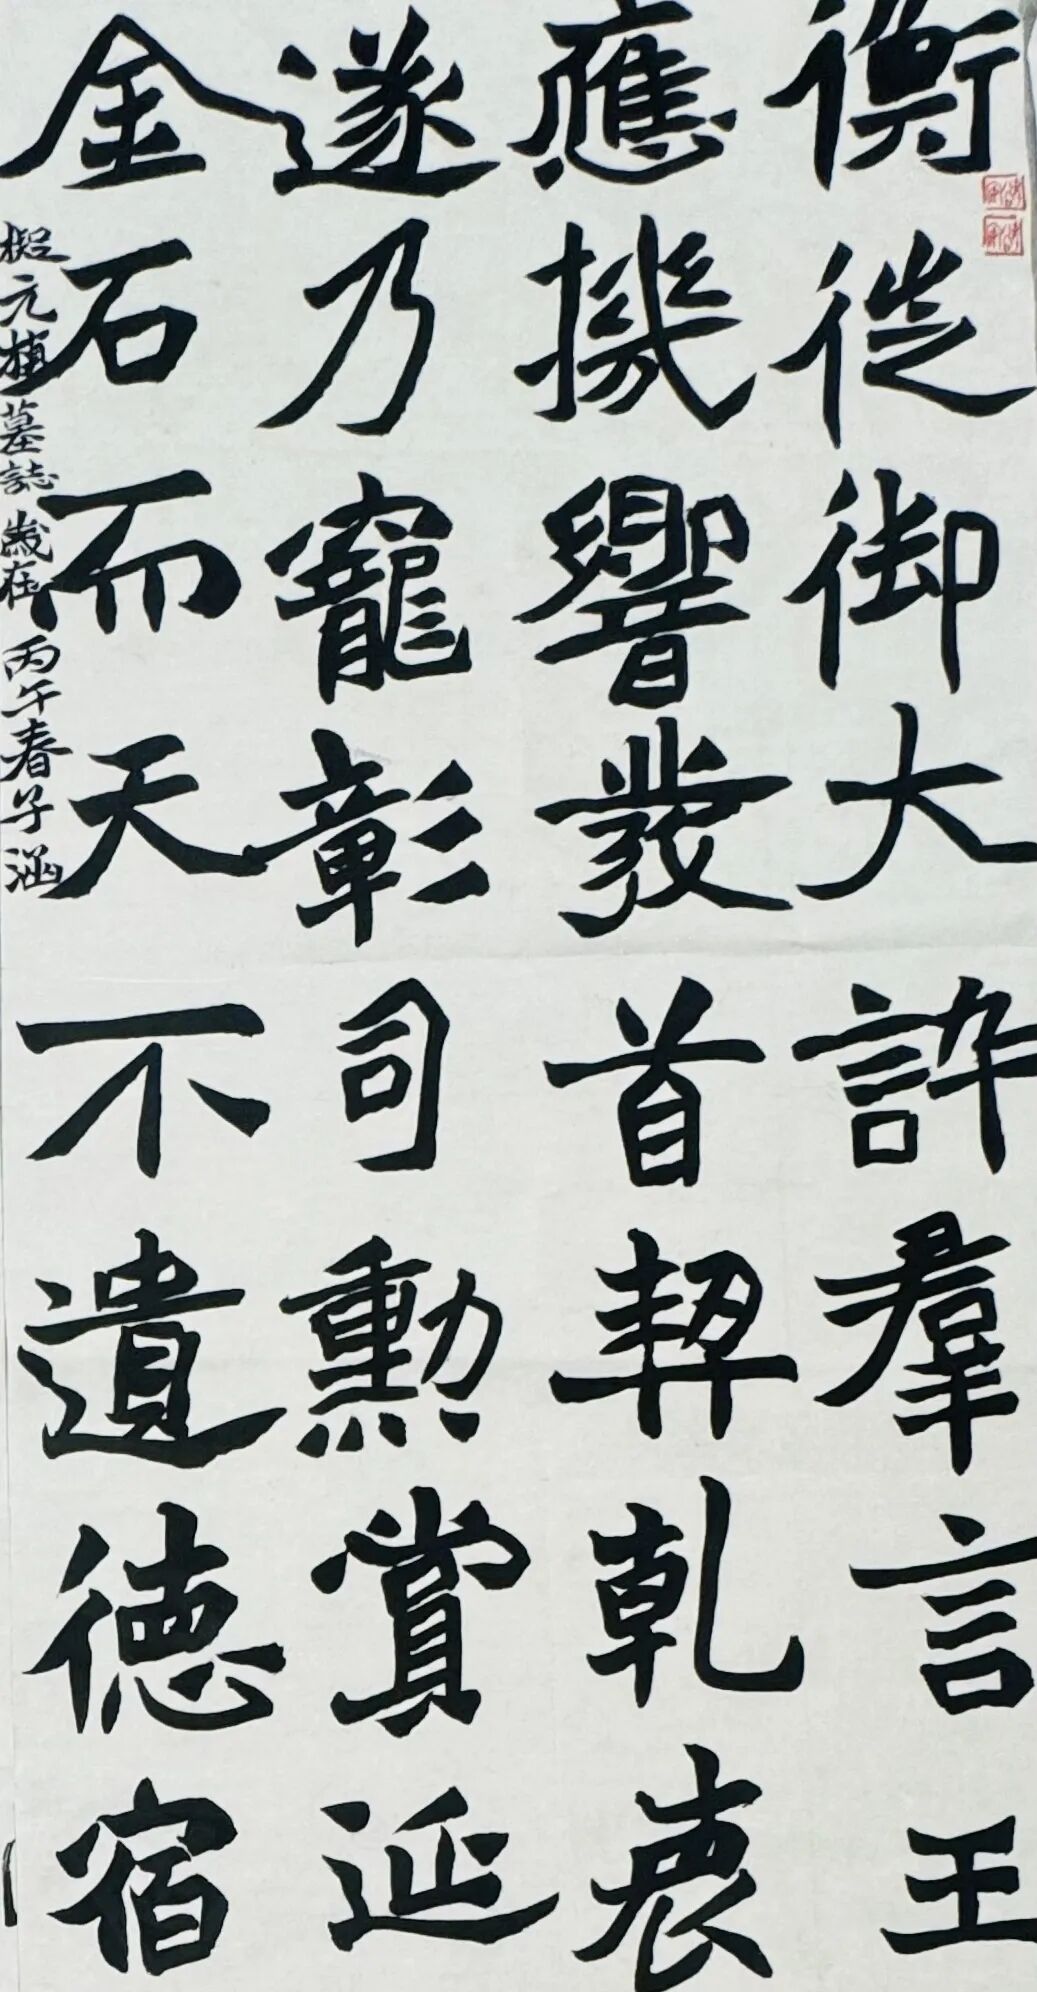 衡徙御大訊羣言王
應機響發首契乾衷
遂乃寵彰司勳賞延
金石而天不遺德宿
元楨墓誌歲在丙午春子涵